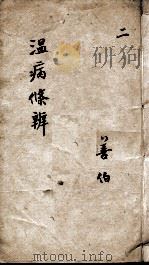 二
温病條辨
善伯